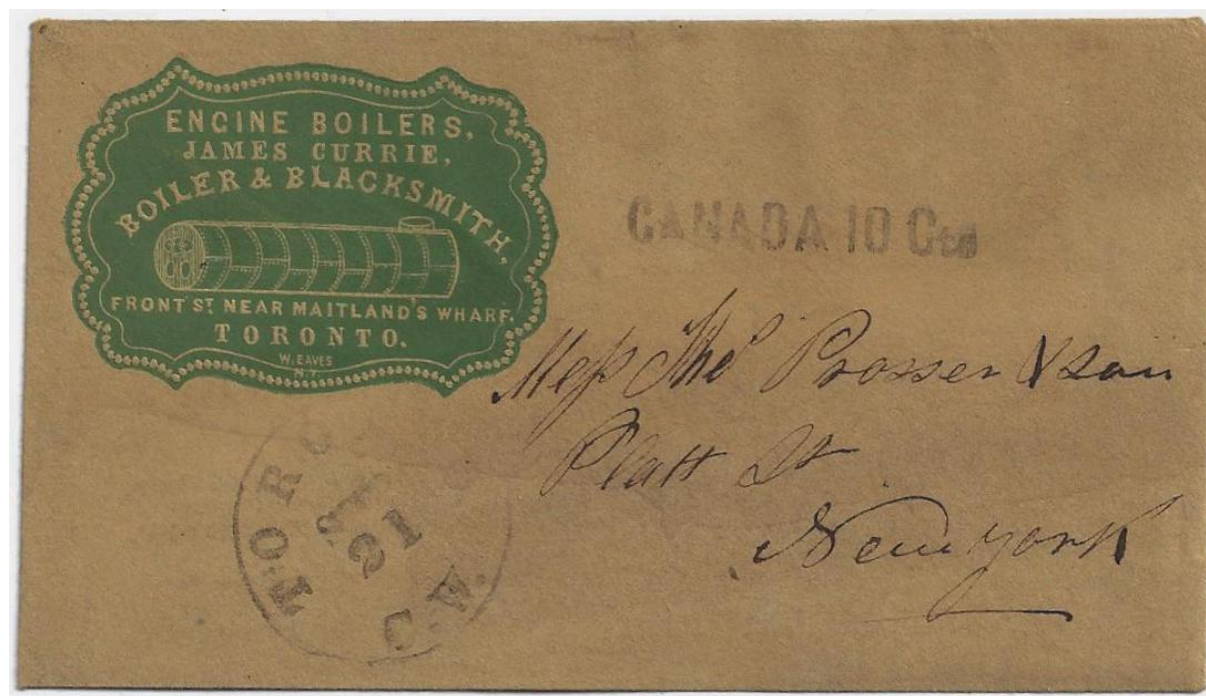 ENGINE BOILERS,
JAMES CURRIE,
BOILER & BLACKSMITH,
FRONT ST NEAR MAITLAND'S WHARF.
TORONTO.
W. EAVES
N.Y.
CANADA 10 Cts
Mess Thos Prosser & Son
Platt St
New York
TORO
21
C.W.